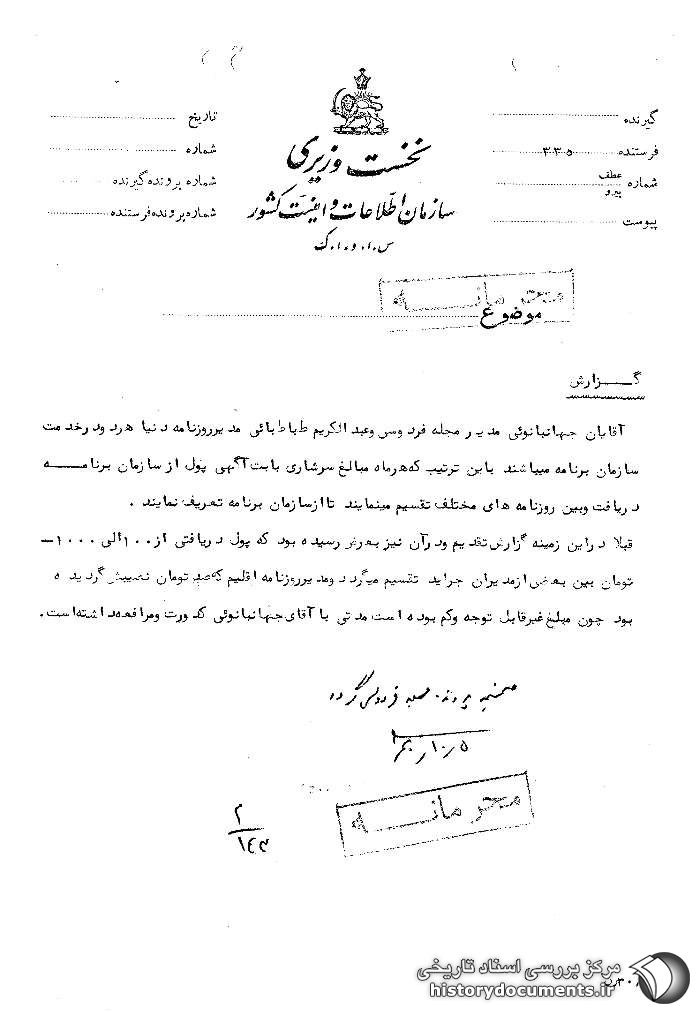 گیرنده
تاریخ
فرستنده ۳۳۵
شماره
شماره عطف پیرو
شماره پرونده گیرنده
پیوست
شماره پرونده فرستنده
نخست وزیری
سازمان اطلاعات و امنیت کشور
س.ا.و.ا.ک
محرمانه
موضوع
گزارش
آقایان جهانبانوئی مدیر مجله فردوسی و عبدالکریم طباطبائی مدیر روزنامه دنیا هردو در خدمت
سازمان برنامه میباشند باین ترتیب که هرماه مبالغ سرشاری بابت آگهی پول از سازمان برنامه
دریافت وبین روزنامه های مختلف تقسیم مینمایند تا از سازمان برنامه تعریف نمایند .
قبلا دراین زمینه گزارش تقدیم ودرآن نیز بعرض رسیده بود که پول دریافتی از ۱۰۰ الی ۱۰۰۰-
تومان بین بعضی ازمدیران جراید تقسیم میگردد ومدیر روزنامه اقلیم که صد تومان نصیبش گردیده
بود چون مبلغ غیرقابل توجه وکم بوده است مدتی با آقای جهانبانوئی کدورت ومرافعه داشته است.
ضمیمه پرونده مجله فردوسی گردد
محرمانه
۲
۱۴۳
مرکز بررسی اسناد تاریخی
historydocuments.ir